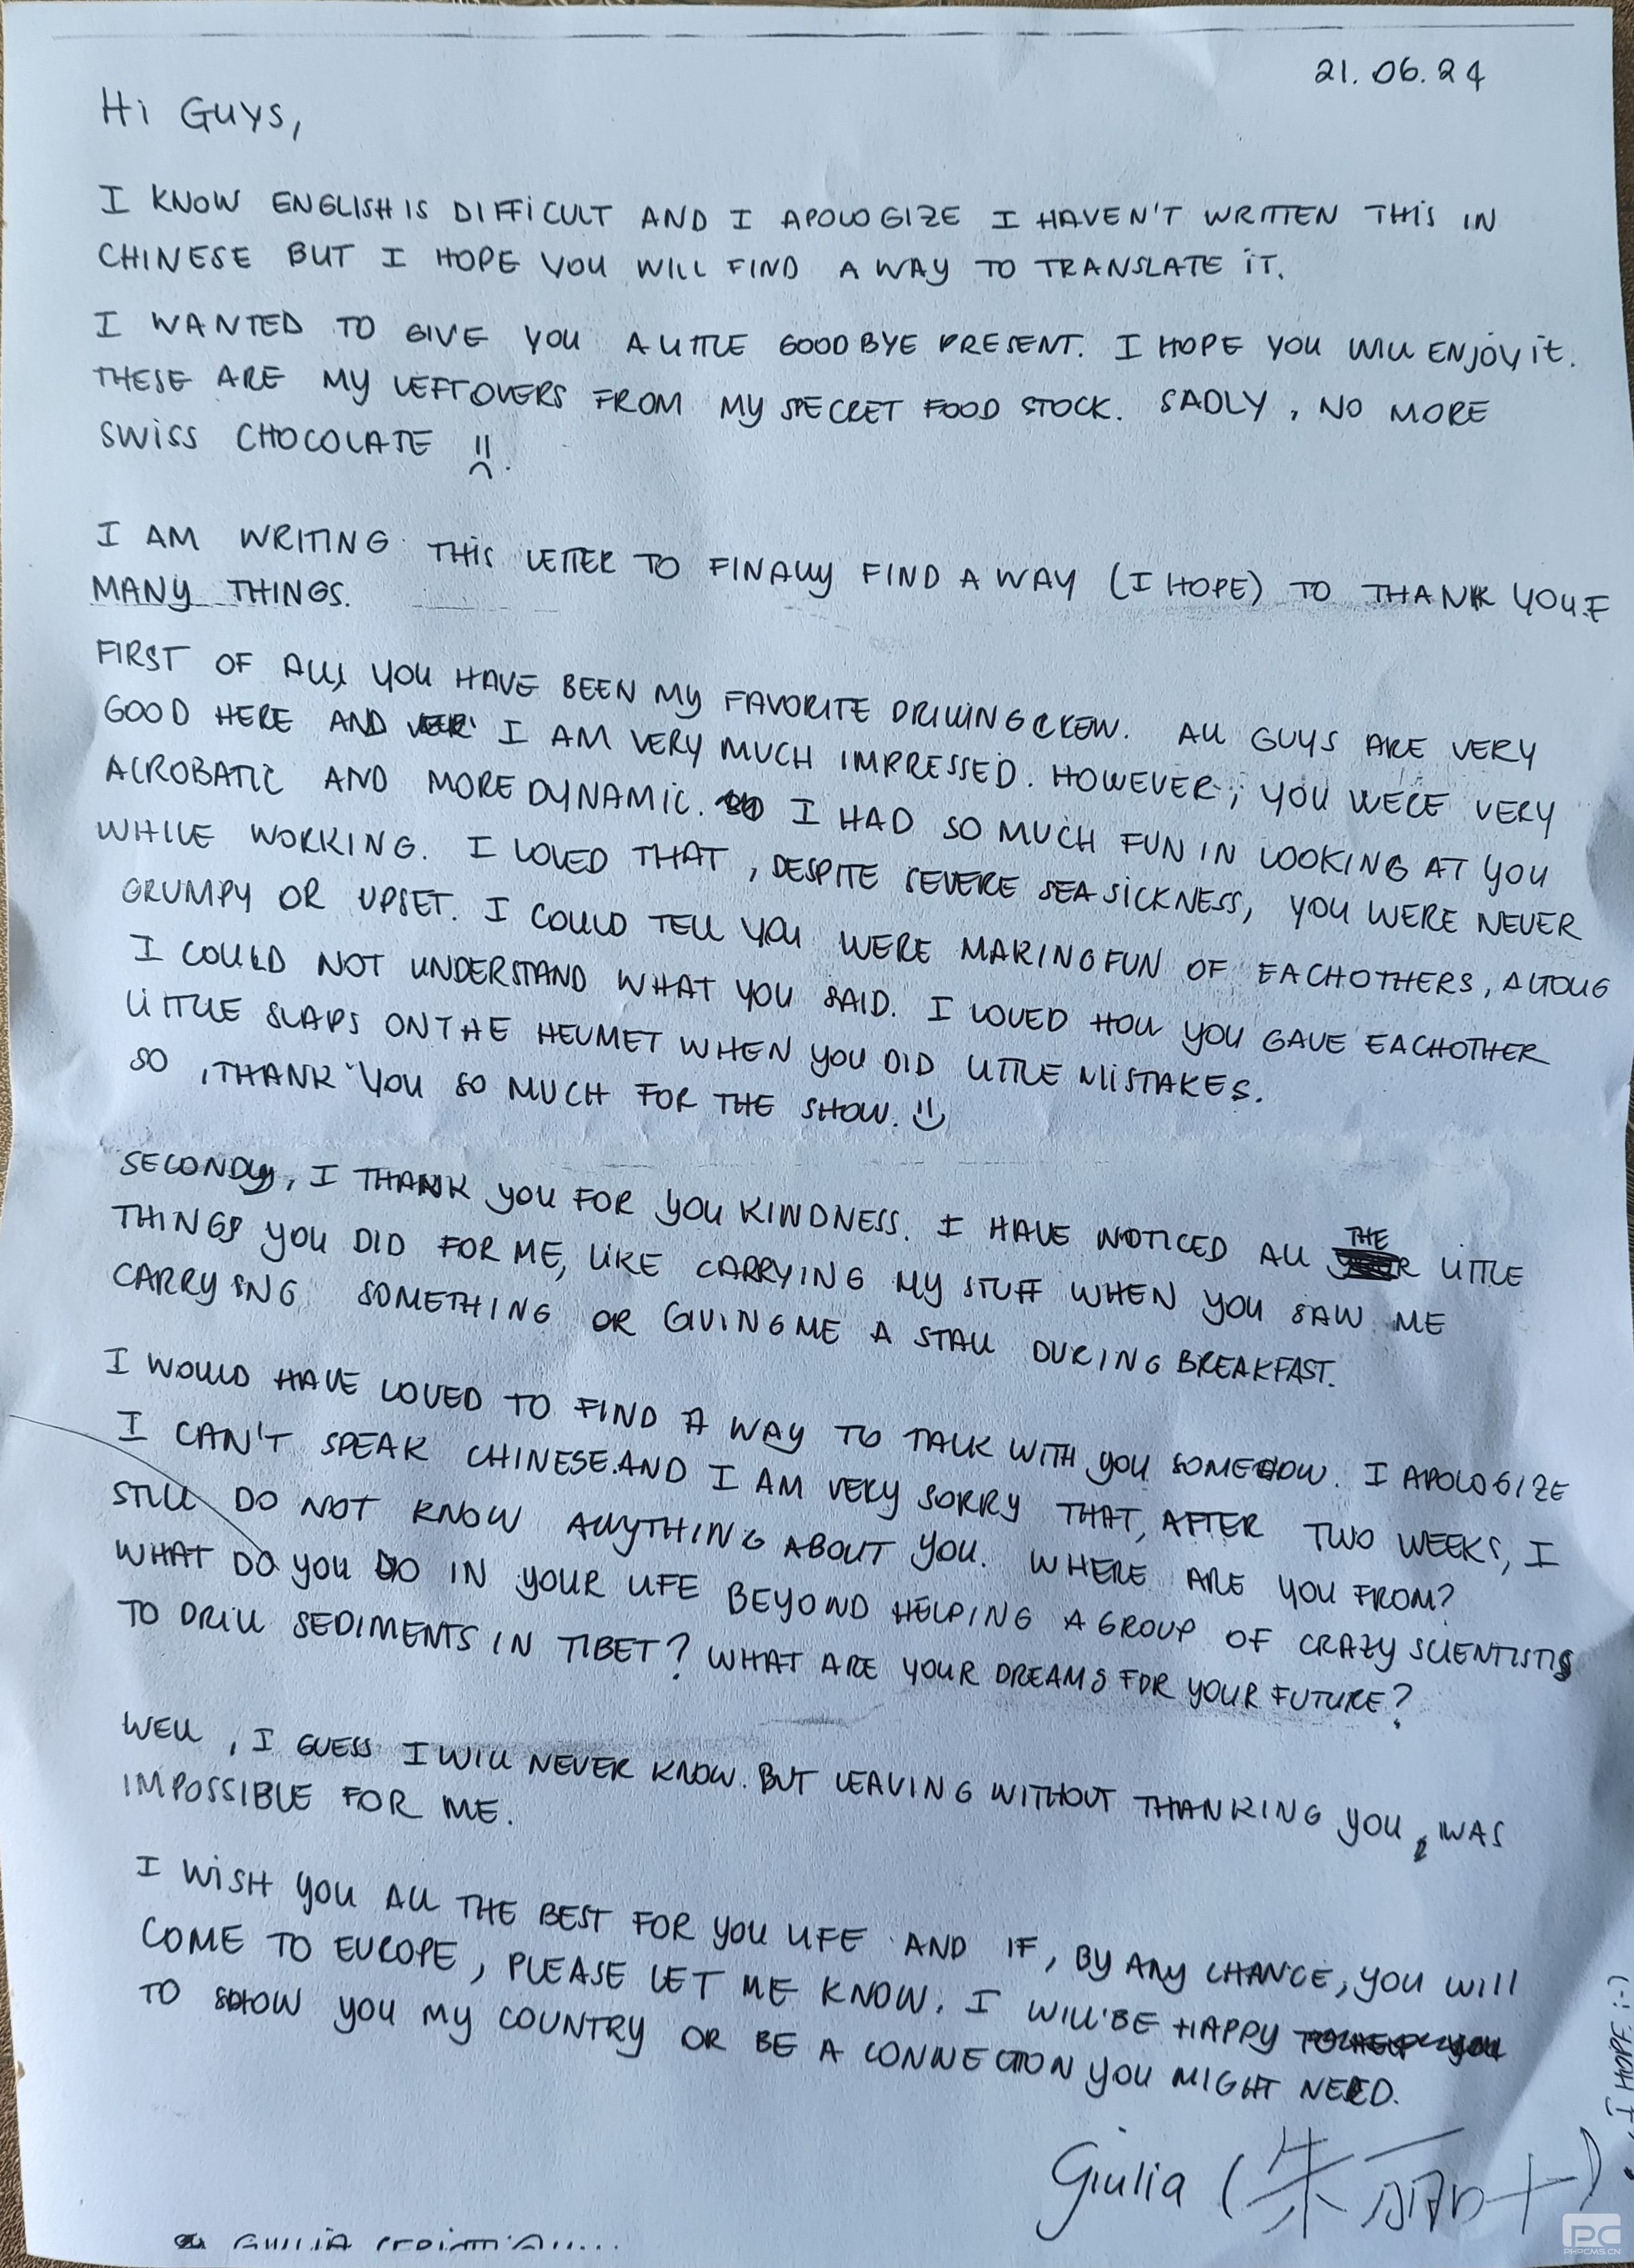 21.06.24
Hi Guys,
I KNOW ENGLISH IS DIFFICULT AND I APOLOGIZE I HAVEN'T WRITTEN THIS IN
CHINESE BUT I HOPE YOU WILL FIND A WAY TO TRANSLATE IT.
I WANTED TO GIVE YOU A LITTLE GOODBYE PRESENT. I HOPE YOU WILL ENJOY IT.
THESE ARE MY LEFTOVERS FROM MY SECRET FOOD STOCK. SADLY, NO MORE
SWISS CHOCOLATE
I AM WRITING THIS LETTER TO FINALLY FIND A WAY (I HOPE) TO THANK YOU F
MANY THINGS.
FIRST OF ALL, YOU HAVE BEEN MY FAVORITE DRILLING CREW. ALL GUYS ARE VERY
GOOD HERE AND I AM VERY MUCH IMPRESSED. HOWEVER, YOU WERE VERY
ACROBATIC AND MORE DYNAMIC. I HAD SO MUCH FUN IN LOOKING AT YOU
WHILE WORKING. I LOVED THAT, DESPITE SEVERE SEA SICKNESS, YOU WERE NEVER
GRUMPY OR UPSET. I COULD TELL YOU WERE MAKING FUN OF EACHOTHERS, ALTOUG
I COULD NOT UNDERSTAND WHAT YOU SAID. I LOVED HOW YOU GAVE EACHOTHER
LITTLE SLAPS ON THE HELMET WHEN YOU DID LITTLE MISTAKES.
SO, THANK YOU SO MUCH FOR THE SHOW.
SECONDLY, I THANK YOU FOR YOU KINDNESS. I HAVE NOTICED ALL THE LITTLE
THINGS YOU DID FOR ME, LIKE CARRYING MY STUFF WHEN YOU SAW ME
CARRYING SOMETHING OR GIVING ME A STALL DURING BREAKFAST.
I WOULD HAVE LOVED TO FIND A WAY TO TALK WITH YOU SOMEHOW. I APOLOGIZE
I CAN'T SPEAK CHINESE. AND I AM VERY SORRY THAT, AFTER TWO WEEKS, I
STILL DO NOT KNOW ANYTHING ABOUT YOU. WHERE ARE YOU FROM?
WHAT DO YOU DO IN YOUR LIFE BEYOND HELPING A GROUP OF CRAZY SCIENTISTS
TO DRILL SEDIMENTS IN TIBET? WHAT ARE YOUR DREAMS FOR YOUR FUTURE?
WELL, I GUESS I WILL NEVER KNOW. BUT LEAVING WITHOUT THANKING YOU, WAS
IMPOSSIBLE FOR ME.
I WISH YOU ALL THE BEST FOR YOU LIFE AND IF, BY ANY CHANCE, YOU WILL
COME TO EUROPE, PLEASE LET ME KNOW. I WILL BE HAPPY
TO SHOW YOU MY COUNTRY OR BE A CONNECTION YOU MIGHT NEED.
Giulia (朱丽叶)
(I HOPE :-)
GIULIA
PHPCMS.CN